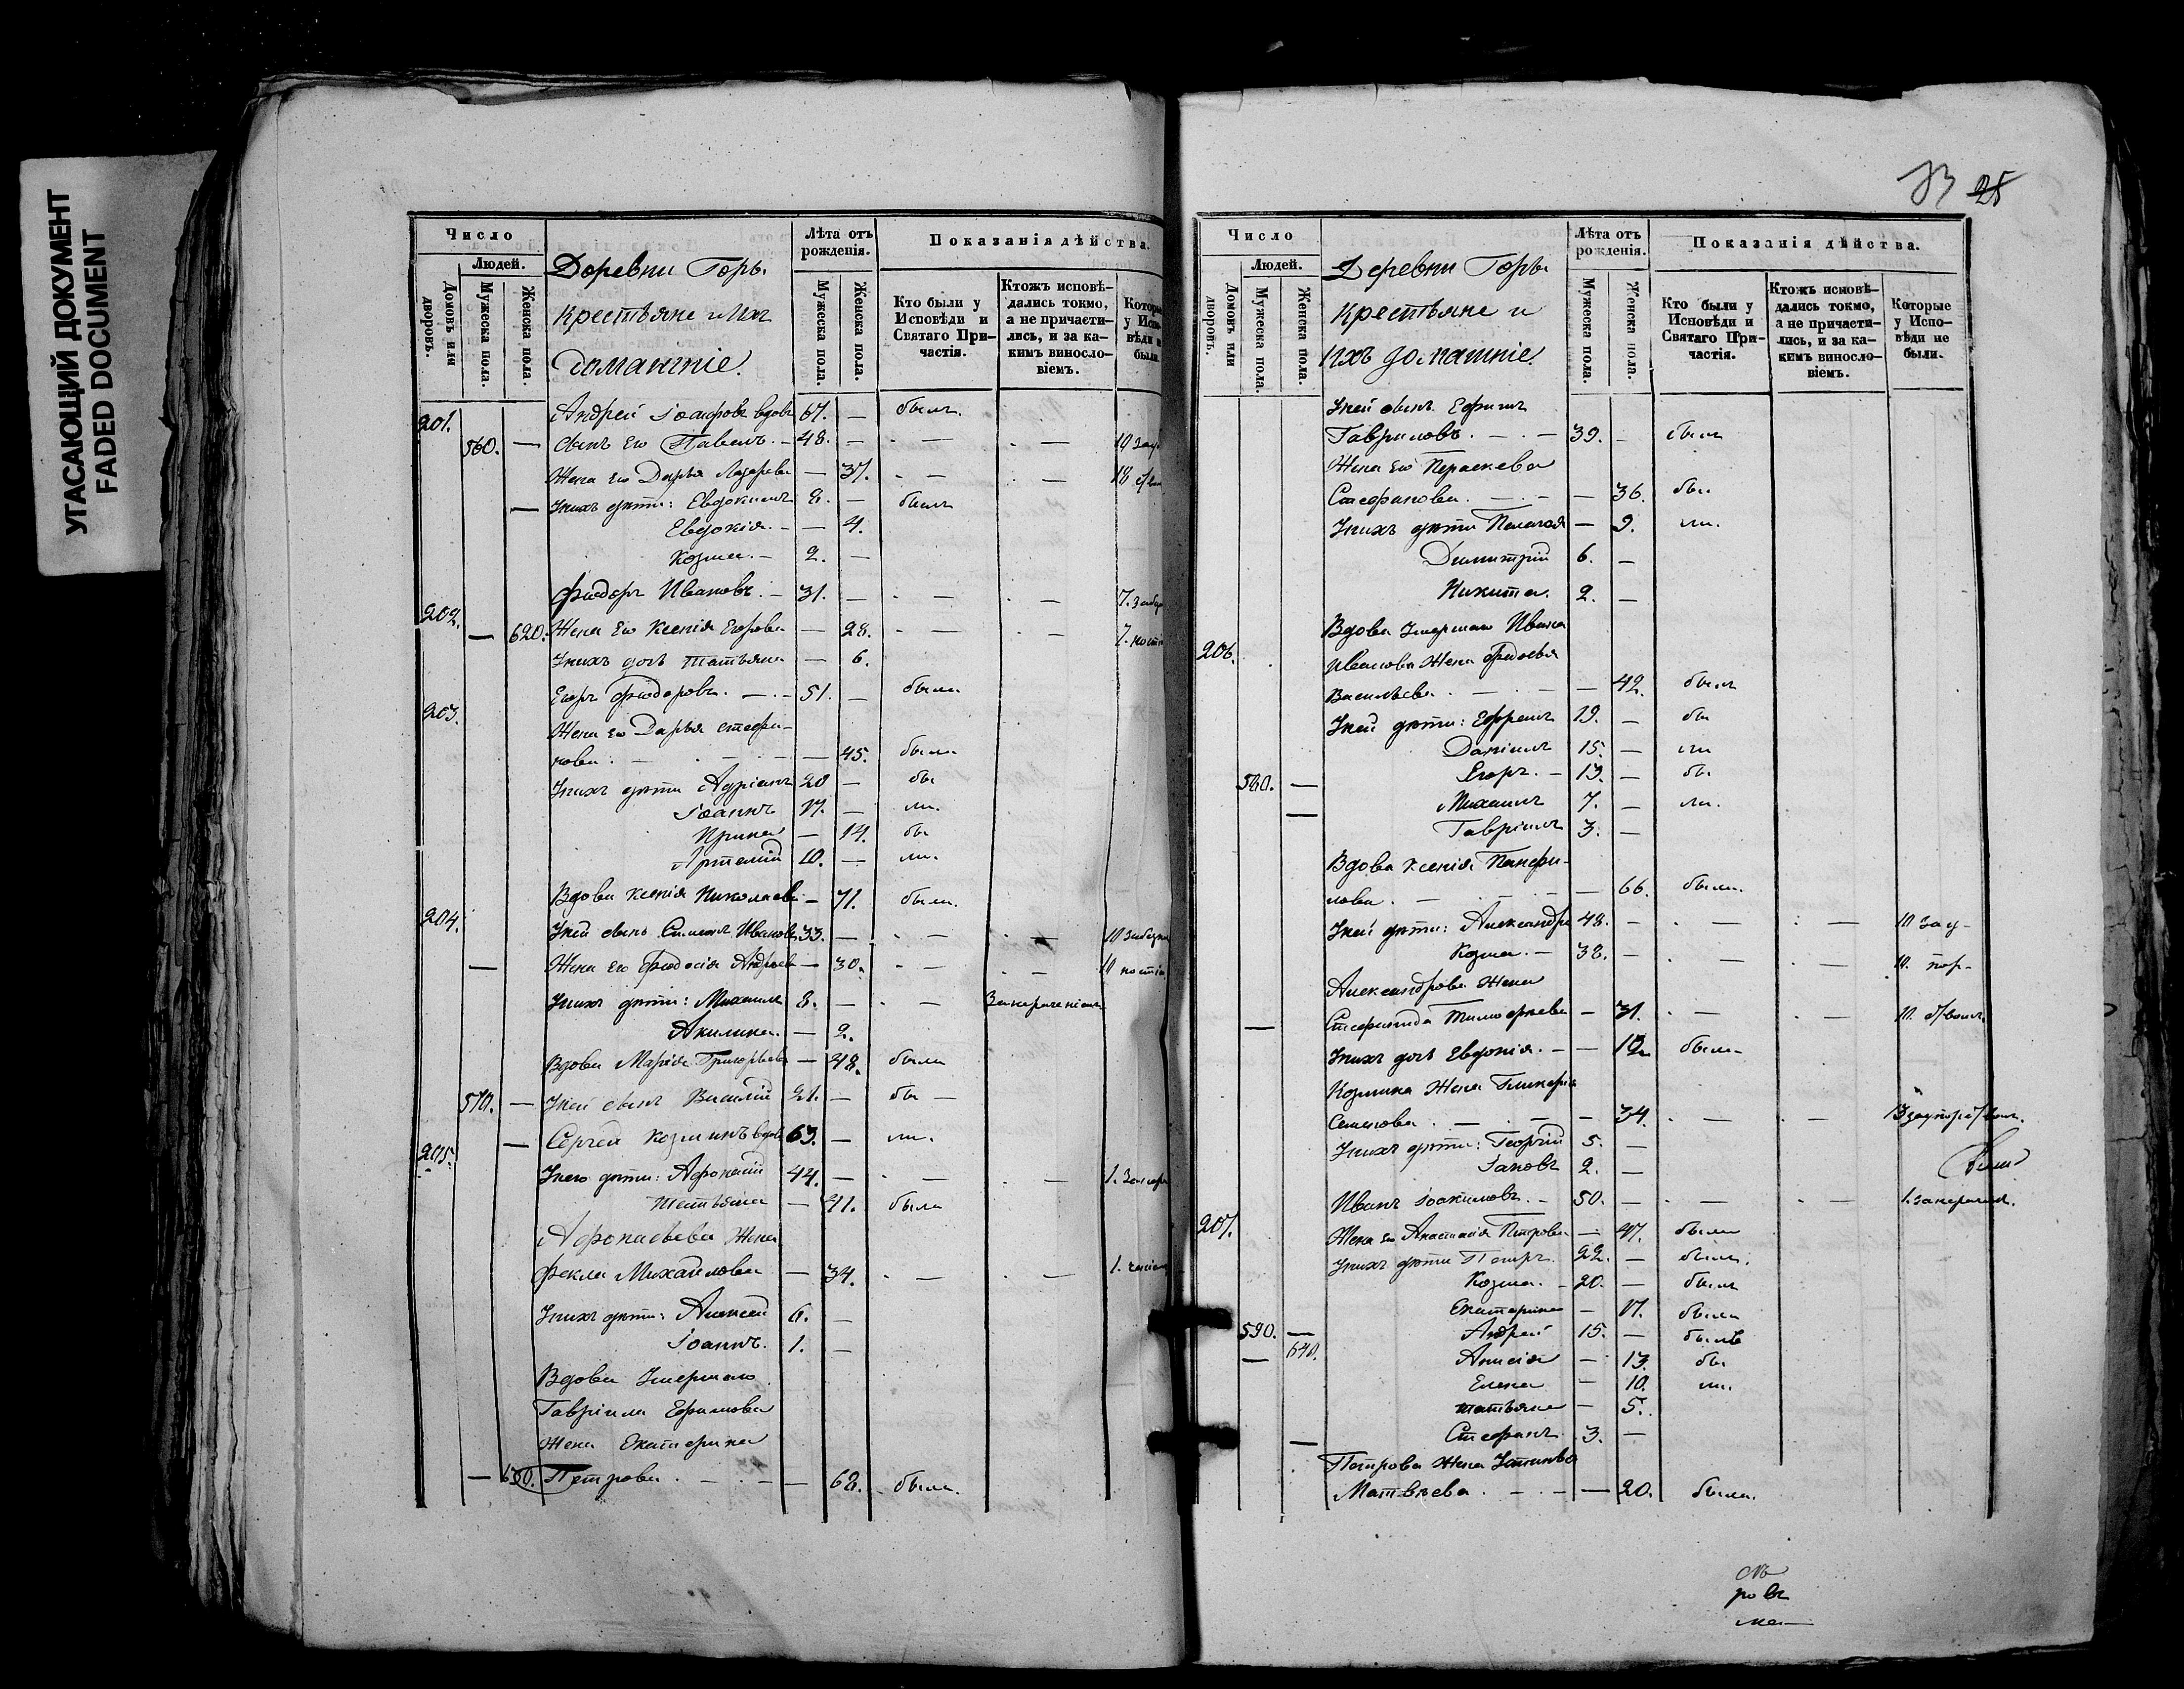 УГАСАЮЩИЙ ДОКУМЕНТ
FADED DOCUMENT
Число
Людей.
Домовъ или дворовъ.
Мужеска пола.
Женска пола.
Деревни Горы
крестьяне и ихъ
домашніе.
Лѣта отъ рожденія.
Мужеска пола.
Женска пола.
Показанія дѣйства.
Кто были у Исповѣди и Святаго Причастія.
Ктожъ исповѣдались токмо, а не причастились, и за какимъ винословіемъ.
Которы у Испо- вѣди н были.
201. Андрей Іосифовъ вдовъ 67. — былъ.
560. — сынъ его Павелъ. — 48. — . — . — 10 за
Жена его Дарья Лазарева — 37. . — . — 18
— У нихъ дѣти: Евдокимъ 8. — былъ
Евдокія. — — 4.
Козма. — 2. —
202. Ѳеодоръ Ивановъ. — 31. — . — . — 7.
— 620. Жена его Ксенія Егорова — 28. . — . — 7.
У нихъ дочь Татьяна — 6.
203. Егоръ Ѳеодоровъ. — . — 51. — были
Жена его Дарья Стефа-
нова. — . — — 45. были
У нихъ дѣти Адріанъ 20 — бы
Іоаннъ 17. — ли.
Ирина — 14. бы
Артемій 10. — ли.
204. Вдова Ксенія Николаева — 71. была.
У ней сынъ Симеонъ Ивановъ 33. — . — . — 10
— Жена его Ѳеодосія Андреева — 30. . — . — 10
У нихъ дѣти: Михаилъ 8. — . —
Акилина. — 2.
Вдова Марія Григорьева — 48. была
570. — У ней сынъ Василій 21. — бы —
205. — Сергей Козминъ вдовъ 63. — ли.
У него дѣти: Афонасій 44. — . — . — 1.
Татьяна — 41. была
Афонасьева жена
Ѳекла Михайлова — 34. . — . — 1.
У нихъ дѣти: Алексей 6. —
Іоаннъ. 1. —
Вдова Умершаго
Гавріила Ефимова
жена Екатерина
— 630. Петрова. — . — — 62. была.
25
Число
Людей.
Домовъ или дворовъ.
Мужеска пола.
Женска пола.
Деревни Горы
Крестьяне и
ихъ домашніе.
Лѣта отъ рожденія.
Мужеска пола.
Женска пола.
Показанія дѣйства.
Кто были у Исповѣди и Святаго Причастія.
Ктожъ исповѣдались токмо, а не причастились, и за какимъ винословіемъ.
Которые у Исповѣди не были.
У ней сынъ Ефимъ
Гавриловъ. — . — 39. — былъ
Жена его Параскева
Стефанова. — . — — 36. бы
У нихъ дѣти Пелагея — 9. ли.
Димитрій 6. —
Никита. 2. —
206. Вдова Умершаго Ивана
Иванова жена
Васильева. — . — — 42. была
У ней дѣти: Ефремъ 19. — бы
Даніилъ 15. — ли
580. — Егоръ. — 13. — бы
— Михаилъ 7. — ли.
Гавріилъ 3. —
Вдова Ксенія Панфи-
лова. — . — — 66. была.
У ней дѣти: Александръ 48. — . — . — 10
Козма. — 38. — . — . — 10.
Александрова жена
— Стефанида Тимофеева — 31. . — . — 10.
У нихъ дочь Евдокія. — — 12 была
Козмина жена Гликерія
Семенова. — . — — 34. . — . — 13
У нихъ дѣти: Георгій 5. —
Іаковъ 2. —
207. Иванъ Іоакимовъ. — 50. — . — . — 1.
Жена его Анастасія Петрова — 47. была
У нихъ дѣти Петръ 22. — былъ.
Козма. — 20. — былъ
Екатерина — 17. была
590. — Андрей 15. — былъ
— 640. Анисія — 13. бы
Елена — 10. ли.
Татьяна — 5.
— Стефанъ 3. —
Петрова жена Устинья
Матвѣева. — . — — 20. была.